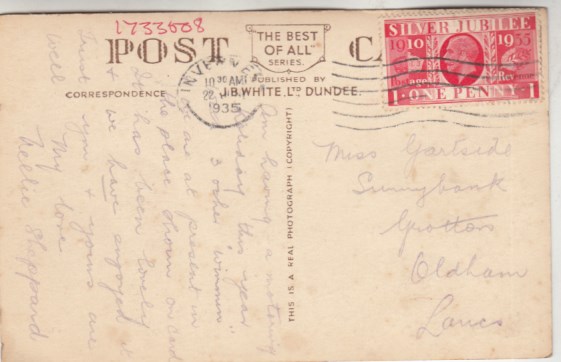 1733508
POST CA
"THE BEST
OF ALL"
SERIES.
CORRESPONDENCE
PUBLISHED BY
J.B.WHITE. LTD DUNDEE.
INVERNESS
10 30 AM
22
1935
SILVER JUBILEE
1910 1935
Postage Revenue
1 · ONE PENNY · 1
THIS IS A REAL PHOTOGRAPH (COPYRIGHT)
Am having a motoring
holiday this year
3 other "winmen"
are at present in
the place shown on card
It has been lovely
& we have enjoyed it
Trust you & yours are
well
My love
Nellie Sheppard
Miss Gartside
Sunnybank
Grotton
Oldham
Lancs